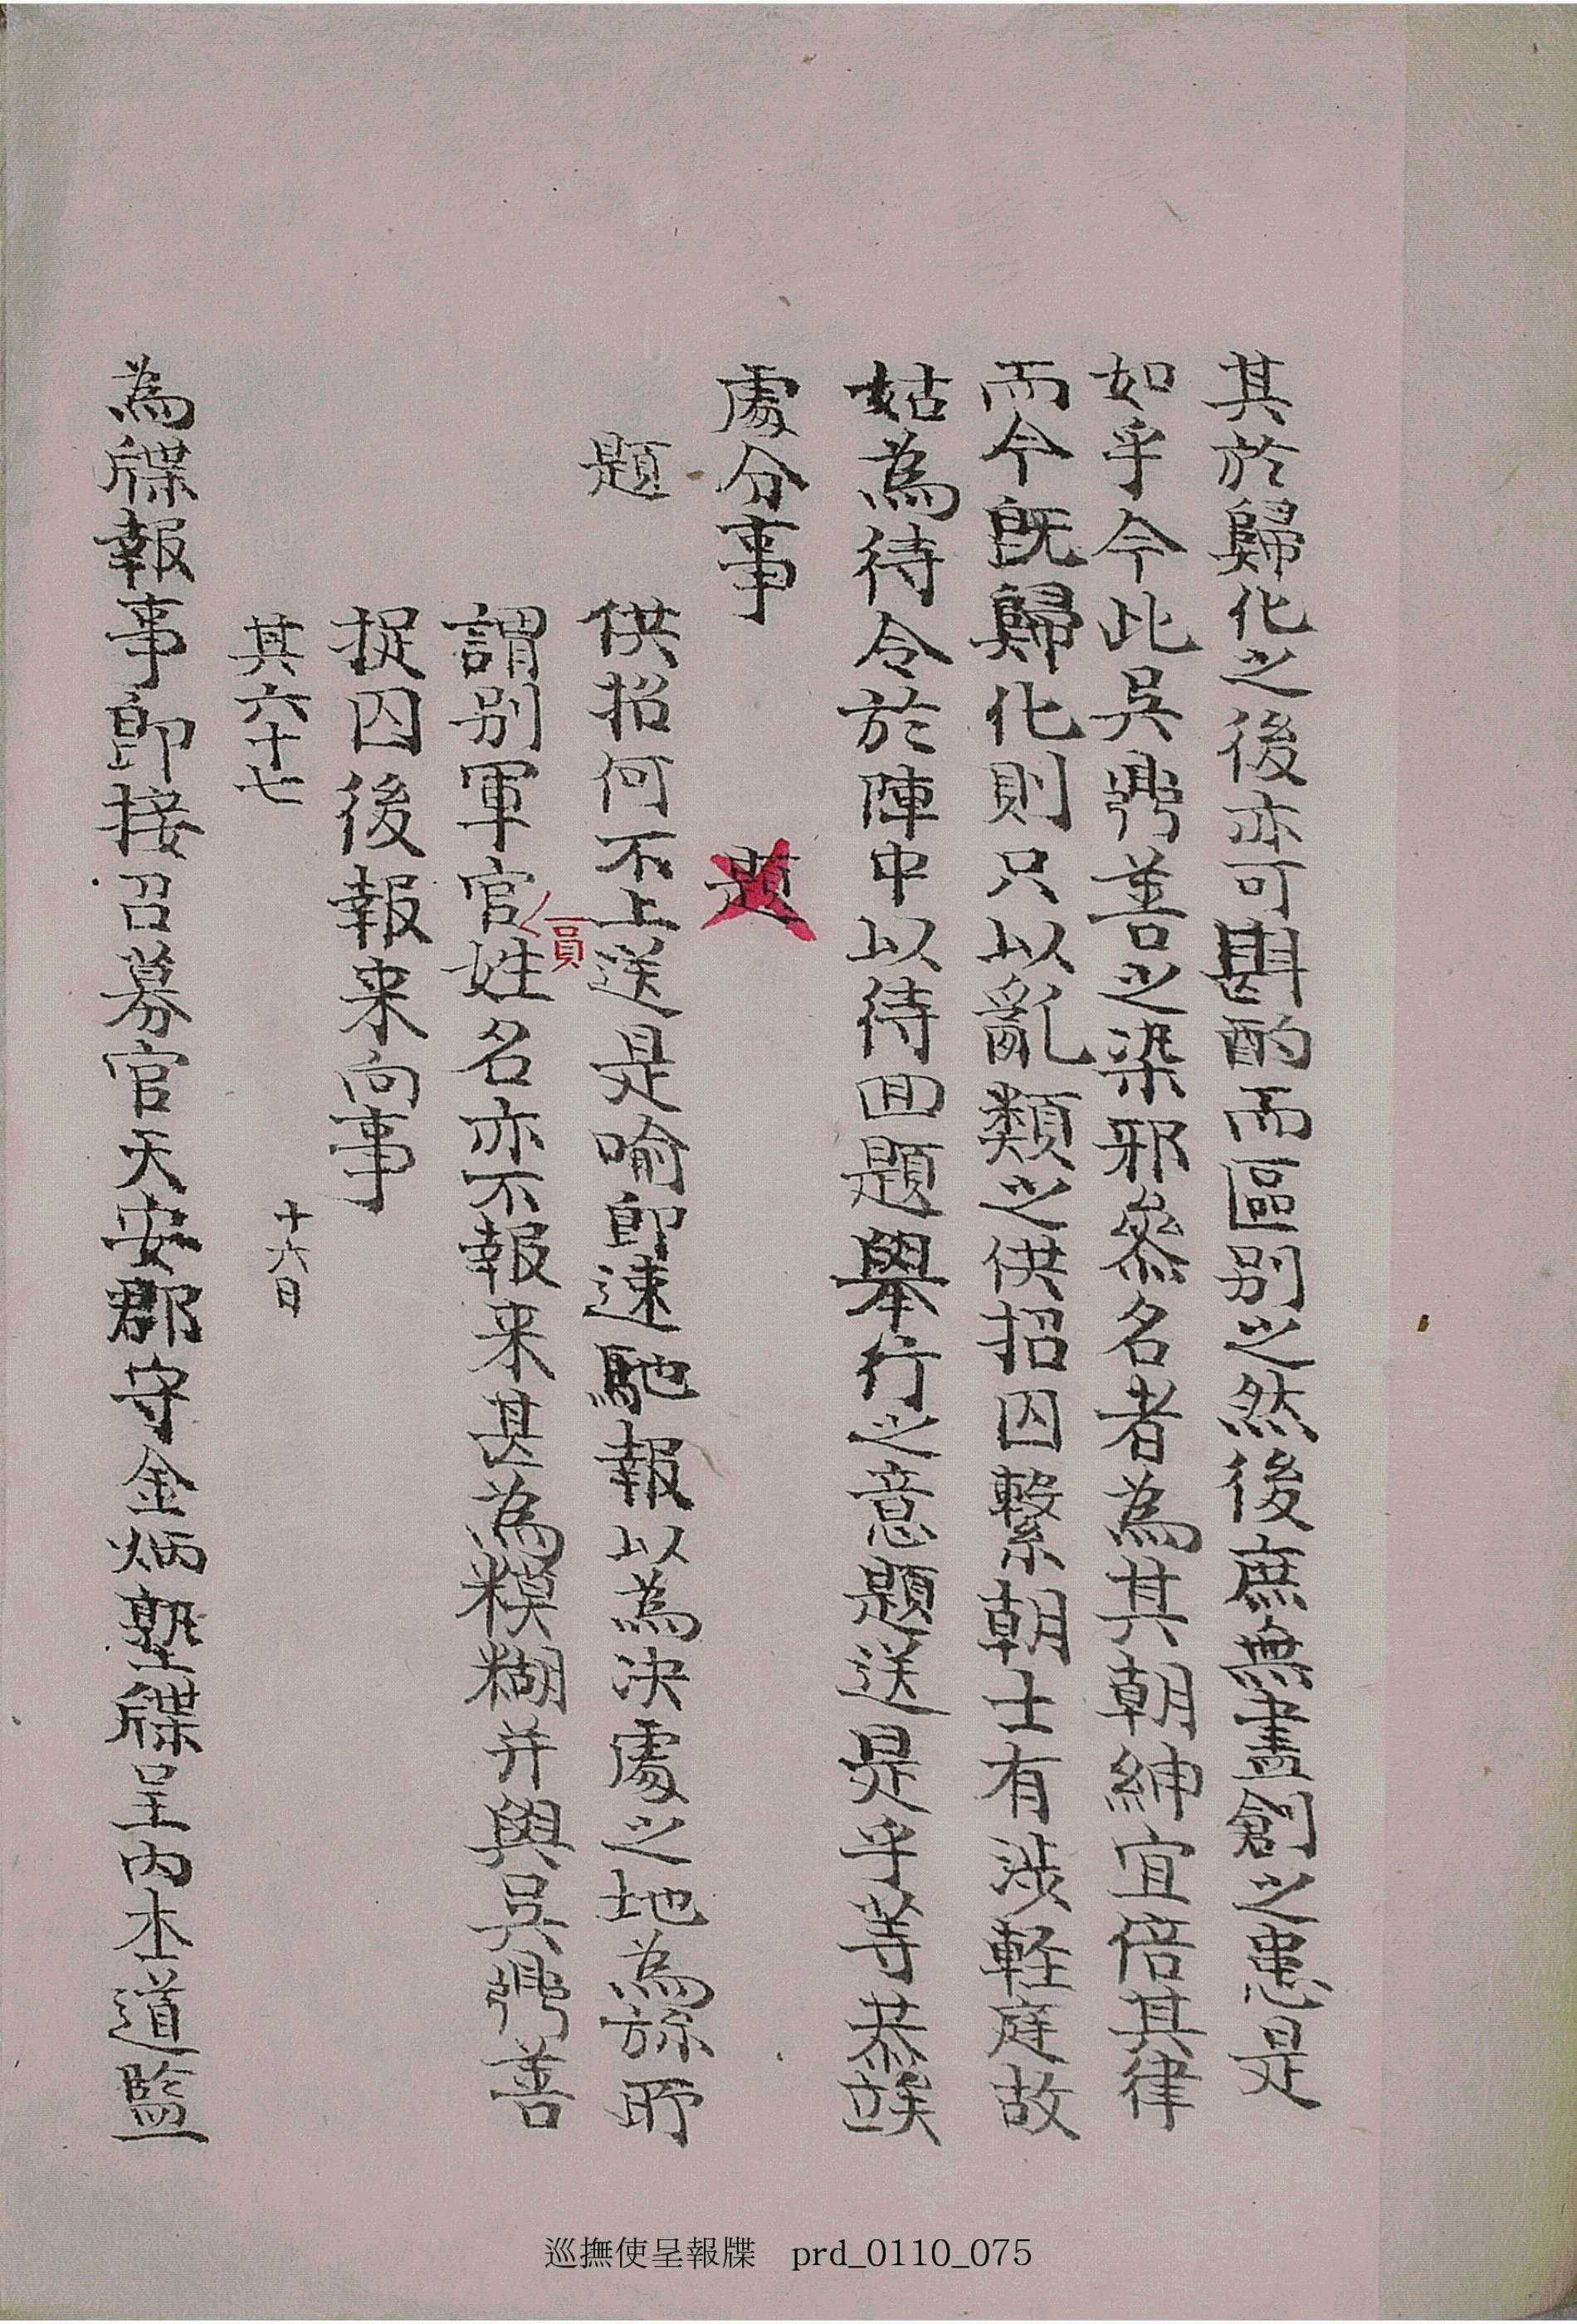 其於歸化之後亦可斟酌而區別之然後庶無盡創之患是
如乎今此吳鼎善之染邪參名者為其朝紳宜倍其律
而今旣歸化則只以亂類之供招囚繫朝士有涉輕庭故
姑為待令於陣中以待回題擧行之意題送是乎等恭竢
處分事
題
題 供招何不上送是喩卽速馳報以為決處之地為旀所
謂別軍官姓名亦不報来甚為糢糊幷與吳鼎善
員
捉囚後報来向事
十六日
其六十七
為牒報事卽接召募官天安郡守金炳塾牒呈內本道監
巡撫使呈報牒 prd_0110_075